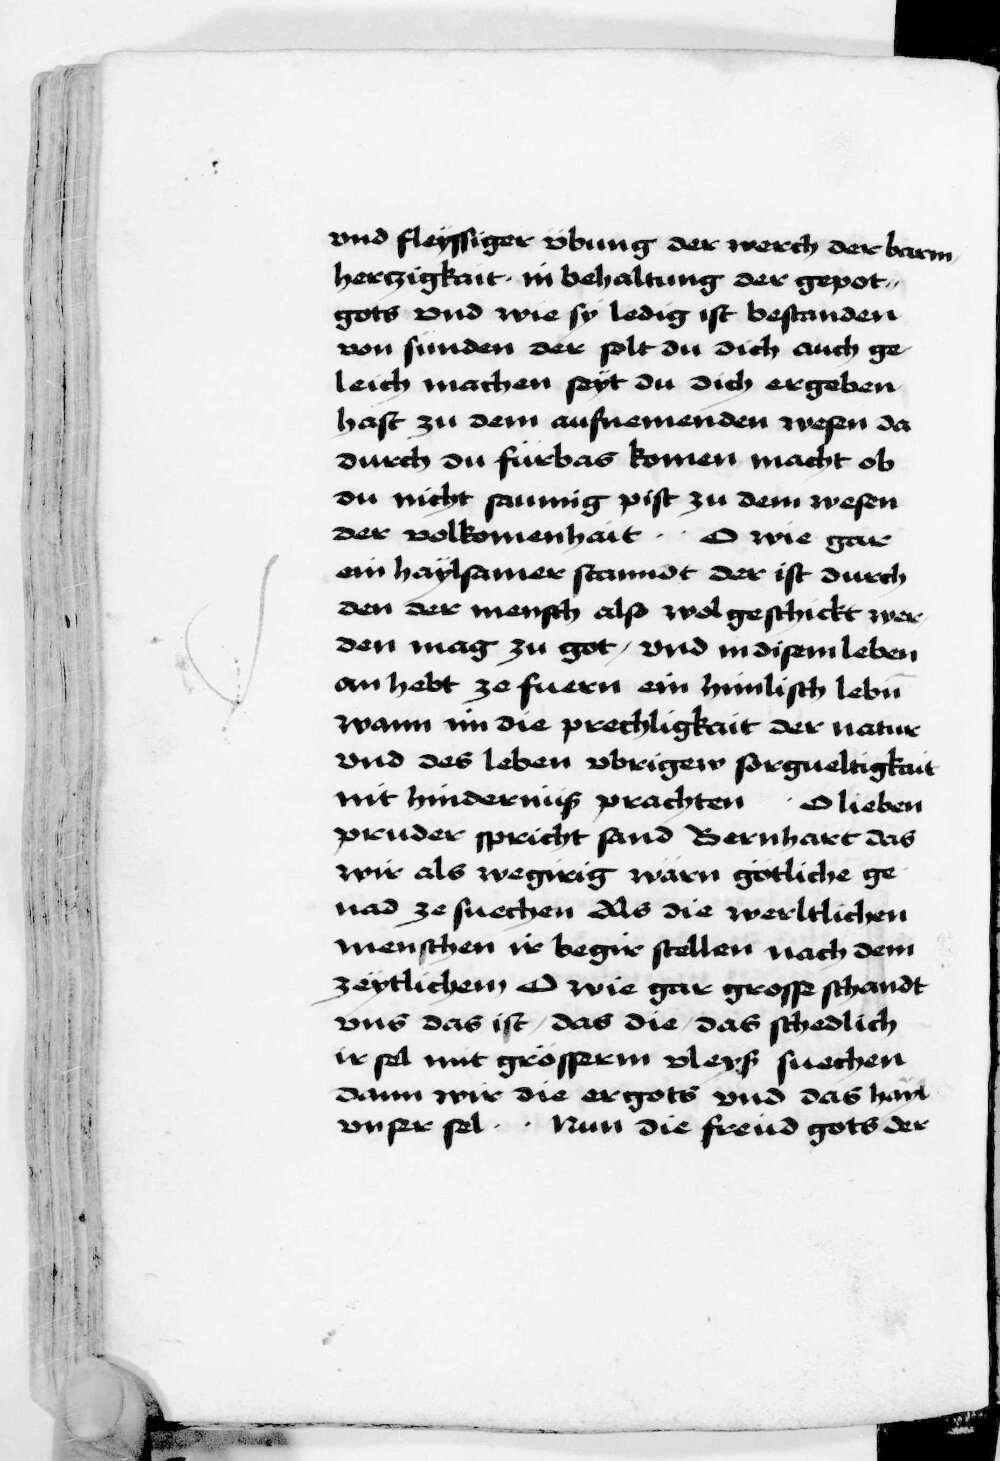 vnd fleÿssiger übung der werch der barm,
herczigkait · in behaltung der gepot ,,
gots vnd wie sÿ ledig ist bestanden
von sünden der solt du dich auch ge,
leich machen seÿt du dich ergeben
hast zu dem aufnemenden wesen da
durch du fürbas komen macht ob
du nicht saumig pist zu dem wesen
der volkomenhait · · O wie gar
ein haÿlsamer stanndt der ist durch
den der mensch also wol geschickt wer,
den mag zu got / vnd in disem leben
an hebt ze fuern ein himlisch lebn̄
wann im die prechligkait der natur
vnd des leben vbrigew sorgueltigkait
nit hindernüß prachten · O lieben
pruder spricht sand Bernhart das
wir als wegirig wärn götliche ge
nad ze suechen Als die werltlichen
menschen ir begir stellen nach dem
zeÿtlichem O wie gar grosse schandt
vns das ist / das die / das schedlich
ir sel mit grösserm vleyß suechen
dann wir die er gots vnd das haÿl
vnser sel · · Nun die freüd gots der